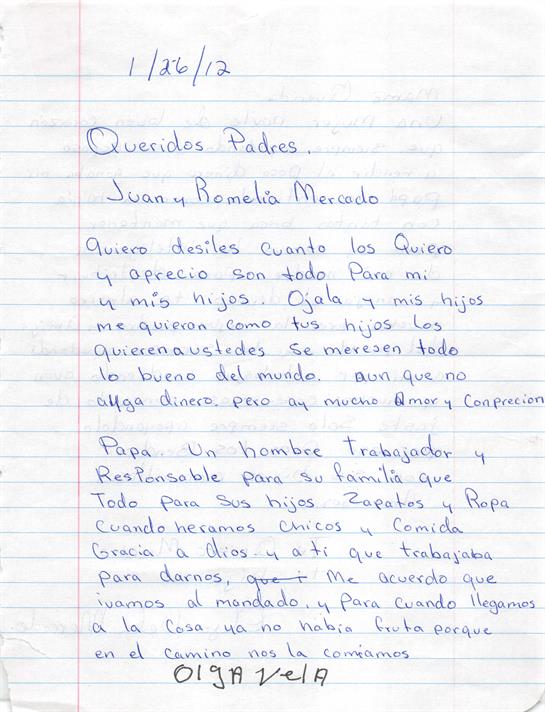 1/26/12
Queridos Padres.
Juan y Romelia Mercado
Quiero desiles cuanto los Quiero
y aprecio son todo Para mi
y mis hijos.. Ojala y mis hijos
me quieran como tus hijos los
quieren a ustedes se meresen todo
lo bueno del mundo. Aun que no
allga dinero. pero ay mucho Amor y Conprecion
Papa. Un hombre Trabajador y
ResPonsable para su familia que
Todo para sus hijos Zapatos y Ropa
Cuando heramos chicos y Comida
Gracia a dios y a ti que trabajaba
para darnos, Me acuerdo que
ivamos al mandado, y Para cuando llegamos
a la Casa ya no habia fruta porque
en el camino nos la comiamos
Olga Vela